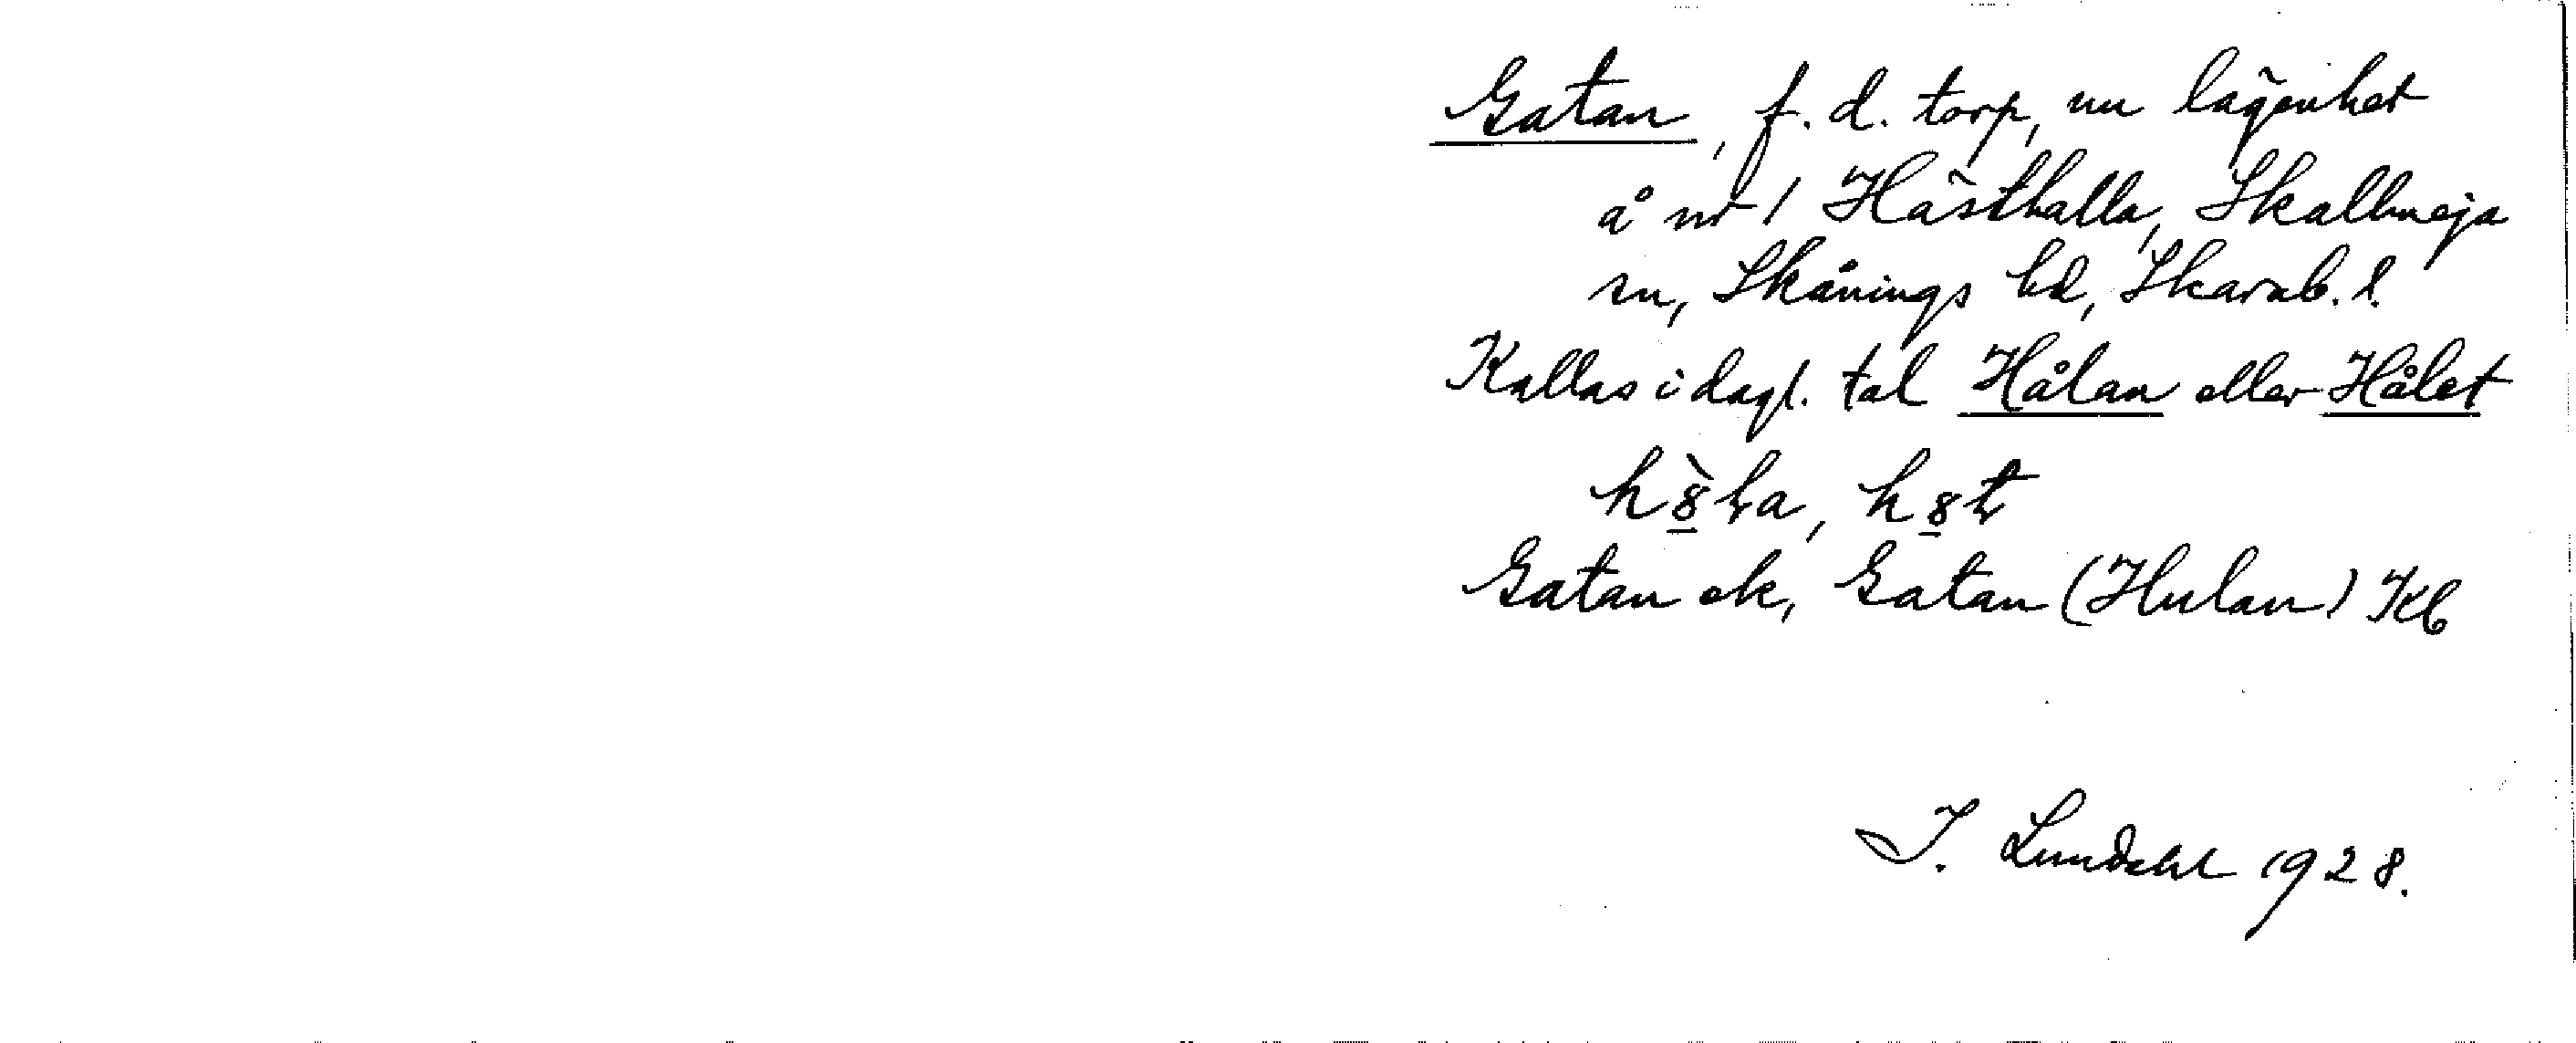 Gatan, f. d. torp, nu lägenhet
å nr 1 Hästhalla, Skallmeja
sn, Skånings hd, Skarab. l.
Kallas i dagl. tal Hålan eller Hålet
Gatan ek, Gatan (Hulan) Kb
I. Lundahl 1928.